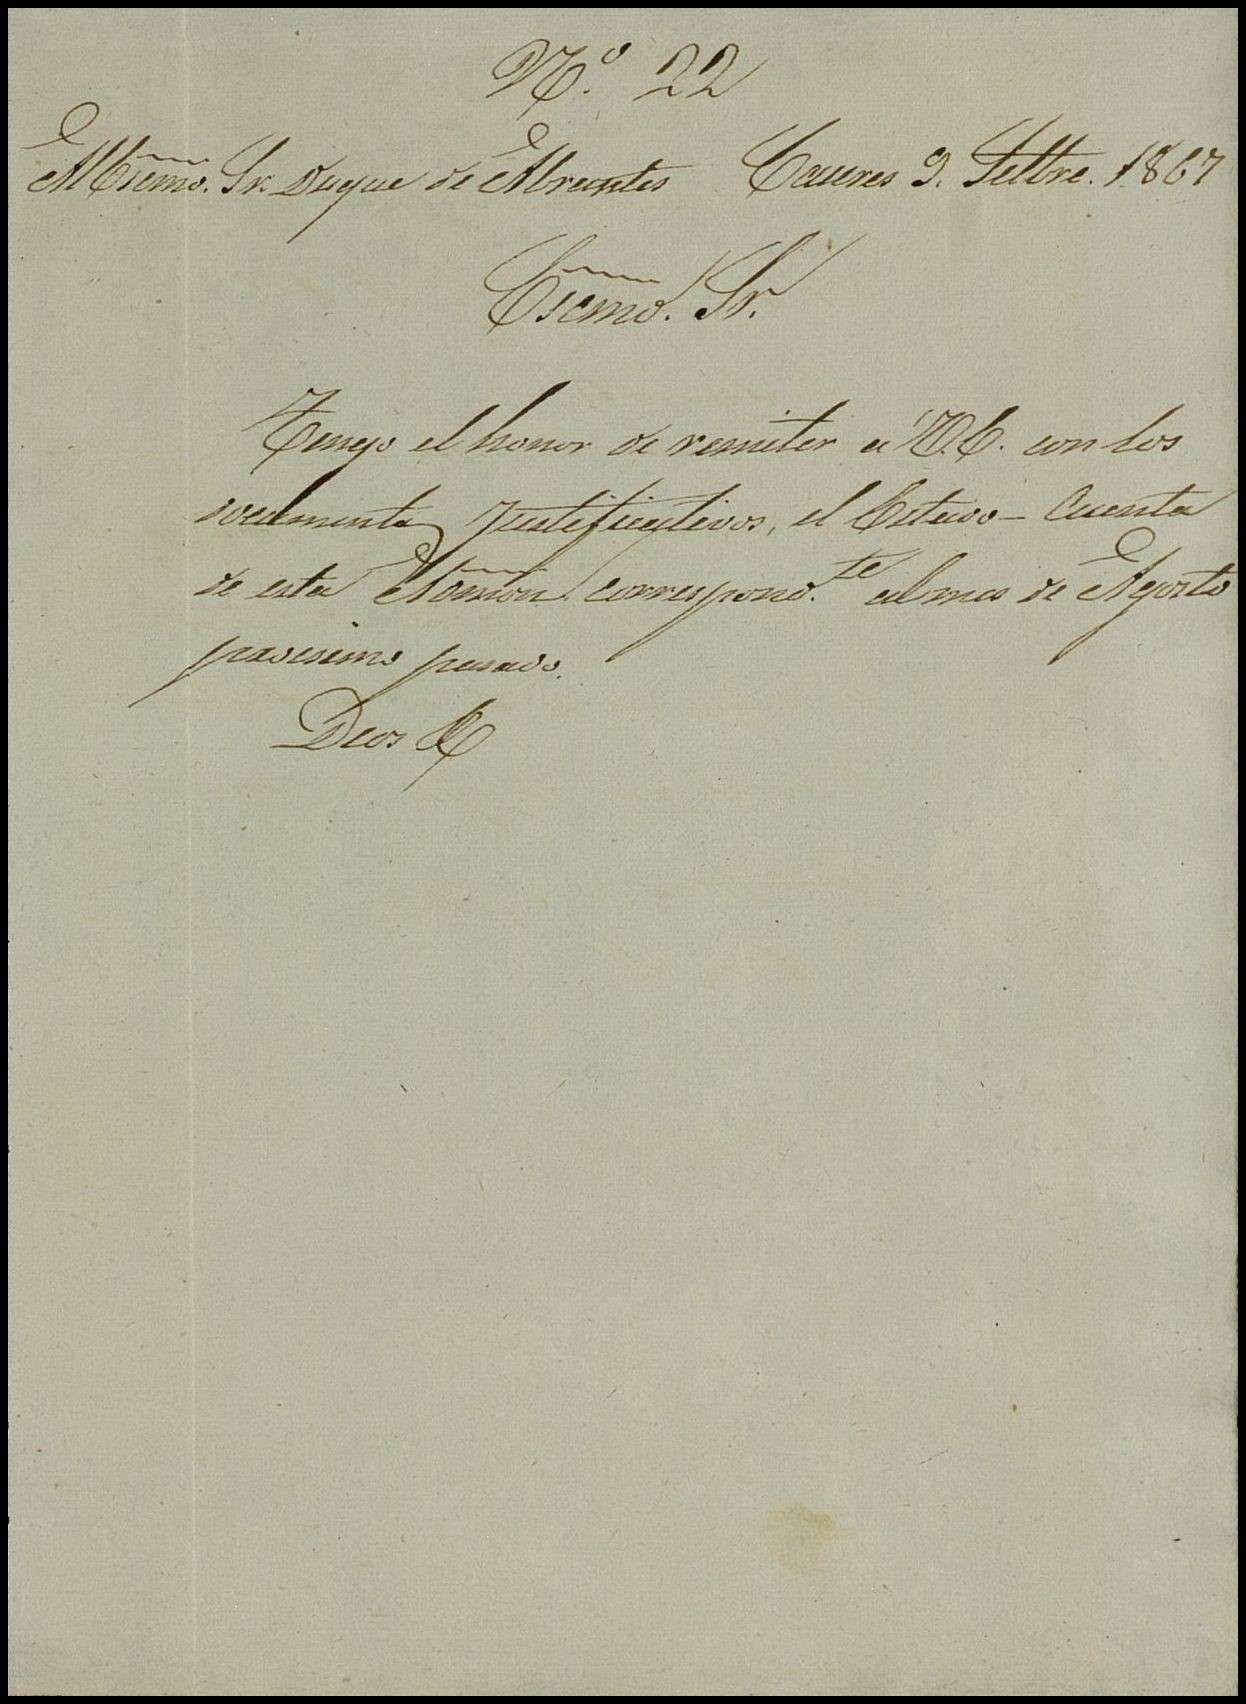 Nº. 22
Al Esemo. Sr. Duque de Abrantes Caceres 9. Setbre. 1867
Esemo. Sr.
Tengo el honor de remitir a V.E. con los
documentos justificativos, el Estado-Cuenta
de esta Admon. correspond.te al mes de Agosto
procsimo pasado.
Dios &